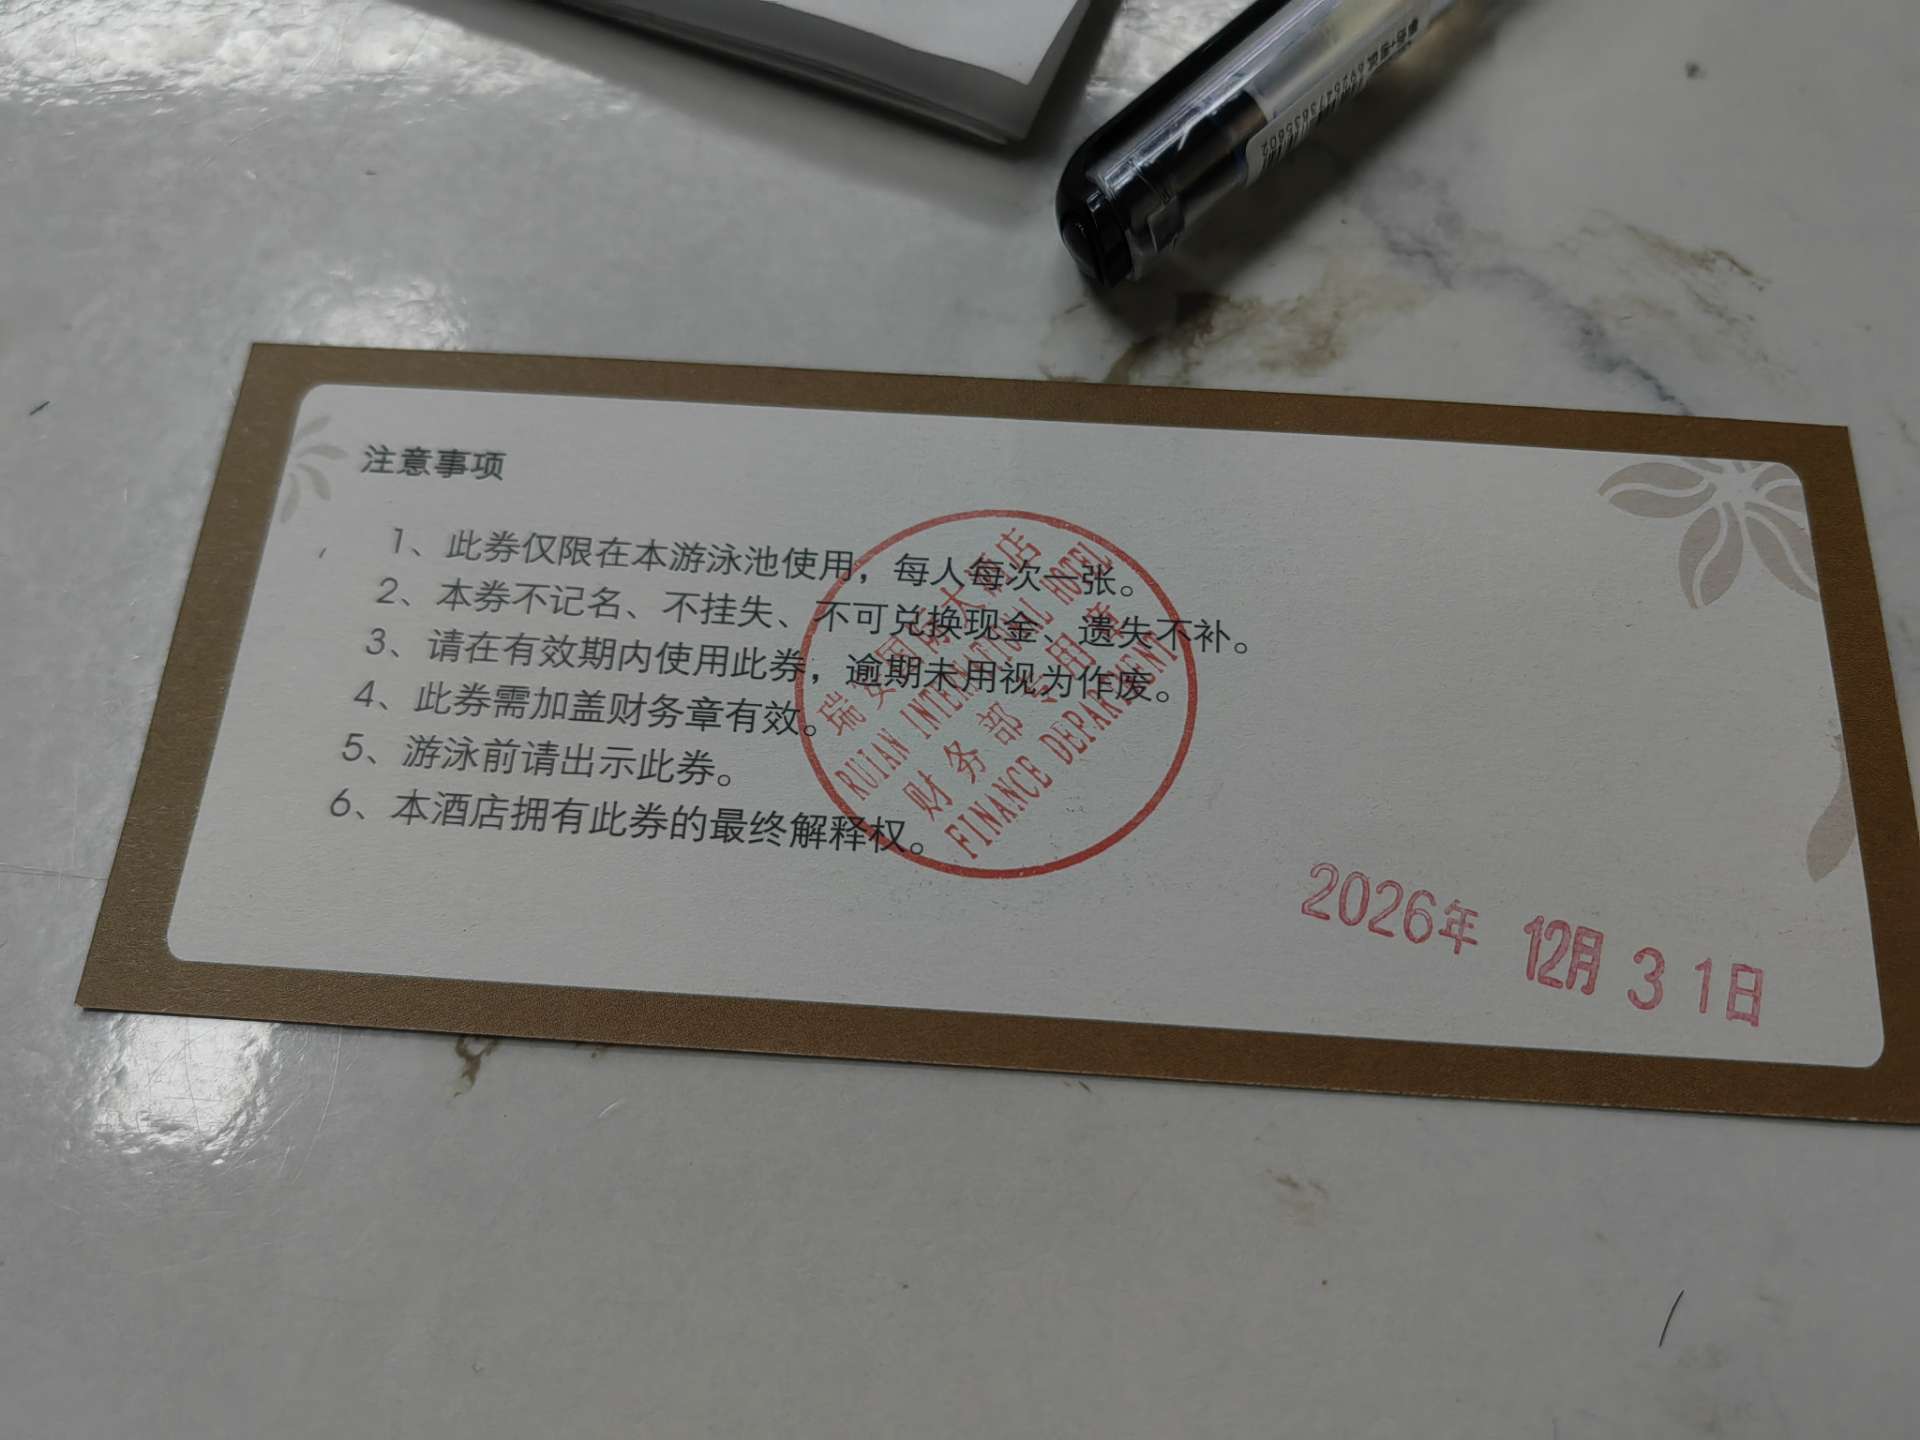 注意事项
1、此券仅限在本游泳池使用，每人每次一张。
2、本券不记名、不挂失、不可兑换现金、遗失不补。
3、请在有效期内使用此券，逾期未用视为作废。
4、此券需加盖财务章有效。
5、游泳前请出示此券。
6、本酒店拥有此券的最终解释权。
瑞安国际大酒店
RUIAN INTERNATIONAL HOTEL
财务部专用章
FINANCE DEPARTMENT
2026年 12月 31日